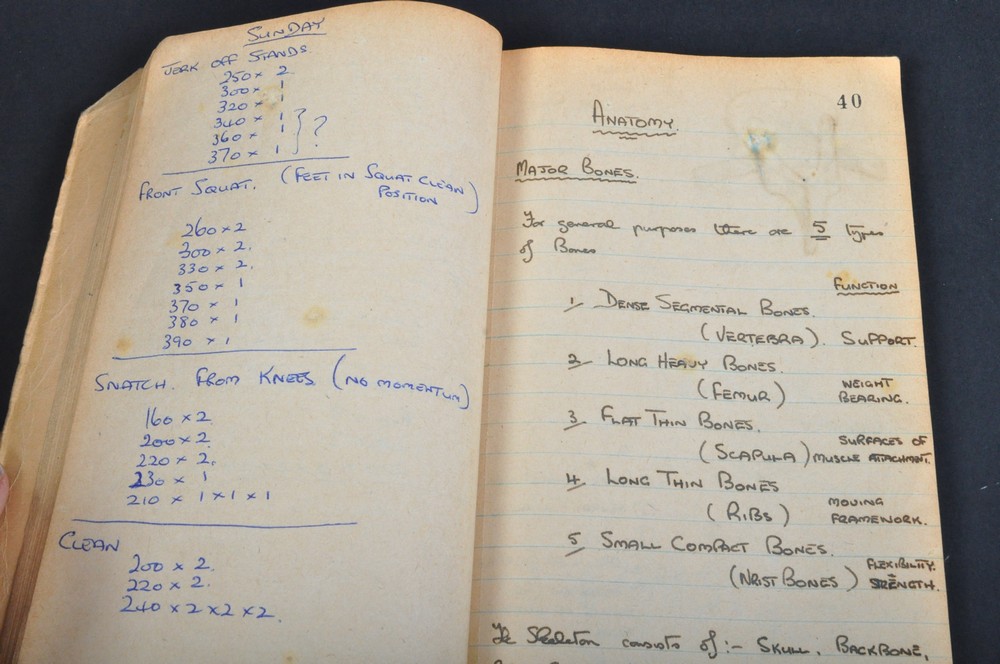 SUNDAY
JERK OFF STANDS.
250 × 2.
300 × 1
320 × 1
340 × 1
360 × 1 ?
370 × 1
FRONT SQUAT. (FEET IN SQUAT CLEAN POSITION)
260 × 2
300 × 2.
330 × 2.
350 × 1
370 × 1
380 × 1
390 × 1
SNATCH. FROM KNEES (NO MOMENTUM)
160 × 2.
200 × 2.
220 × 2.
230 × 1
210 × 1 × 1 × 1
CLEAN
200 × 2.
220 × 2.
240 × 2 × 2 × 2.
40
ANATOMY.
MAJOR BONES.
For general purposes there are 5 types
of Bones
FUNCTION
1 DENSE SEGMENTAL BONES.
(VERTEBRA). SUPPORT.
2 LONG HEAVY BONES.
(FEMUR) WEIGHT BEARING.
3 FLAT THIN BONES.
(SCAPULA) SURFACES OF MUSCLE ATTACHMENT.
4 LONG THIN BONES
(RIBS) MOVING FRAMEWORK.
5 SMALL COMPACT BONES.
(WRIST BONES) FLEXIBILITY. STRENGTH.
The Skeleton consists of:- SKULL, BACKBONE,